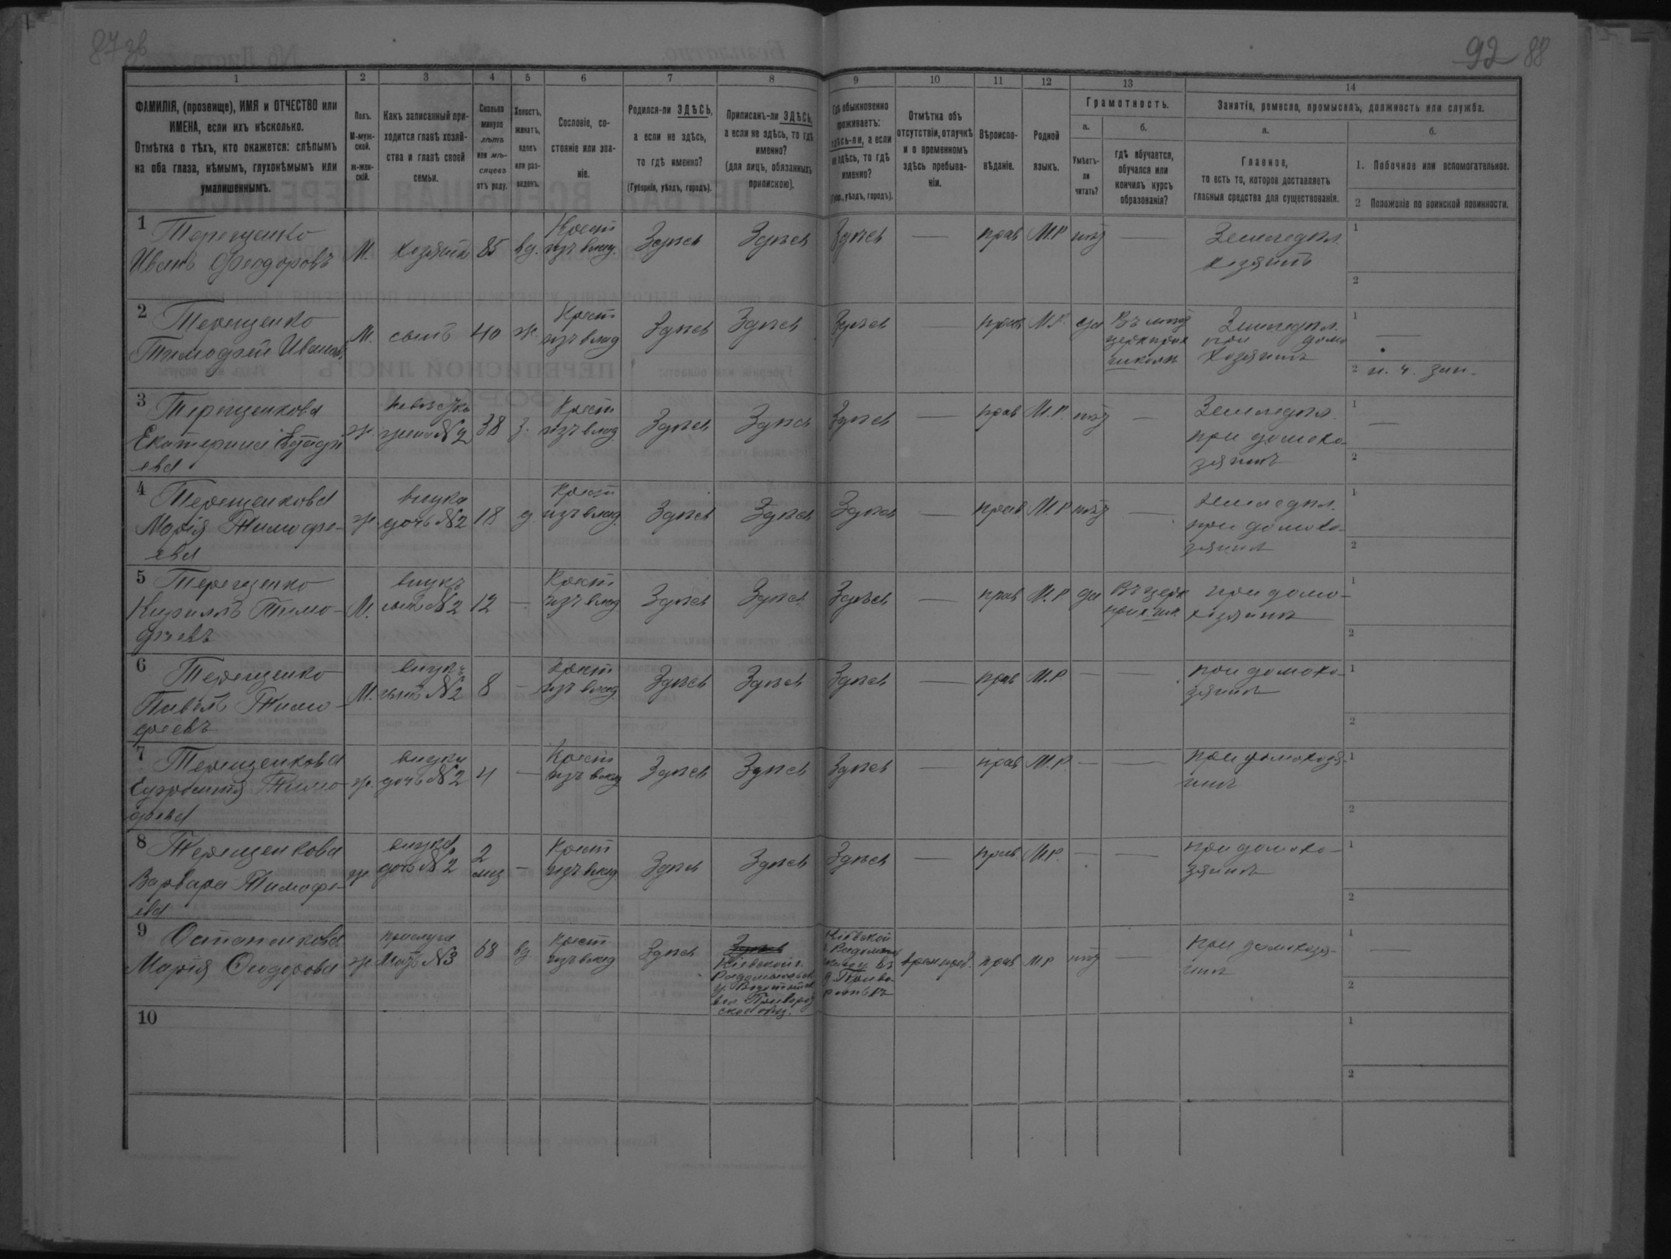 87 зв
92 88
1 2 3 4 5 6 7 8 9 10 11 12 13 14
ФАМИЛІЯ, (прозвище), ИМЯ и ОТЧЕСТВО или ИМЕНА, если ихъ нѣсколько.
Отмѣтка о тѣхъ, кто окажется: слѣпымъ на оба глаза, нѣмымъ, глухонѣмымъ или умалишеннымъ.
Полъ.
М-мужской.
ж-женскій.
Какъ записанный приходится главѣ хозяйства и главѣ своей семьи.
Сколько минуло лѣтъ или мѣсяцевъ отъ роду.
Холостъ, женатъ, вдовъ или разведенъ.
Сословіе, состояніе или званіе.
Родился-ли ЗДѢСЬ, а если не здѣсь, то гдѣ именно?
(Губернія, уѣздъ, городъ).
Приписанъ-ли ЗДѢСЬ, а если не здѣсь, то гдѣ именно?
(для лицъ, обязанныхъ припискою).
Гдѣ обыкновенно проживаетъ: здѣсь-ли, а если не здѣсь, то гдѣ именно?
уѣздъ, городъ).
Отмѣтка объ отсутствіи, отлучкѣ и о временномъ здѣсь пребываніи.
Вѣроисповѣданіе.
Родной языкъ.
Грамотность.
а.
Умѣетъ-ли читать?
б.
гдѣ обучается, обучался или кончилъ курсъ образованія?
Занятіе, ремесло, промыселъ, должность или служба.
а.
Главное,
то есть то, которое доставляетъ главныя средства для существованія.
б.
1. Побочное или вспомогательное.
2 Положеніе по воинской повинности.
1 Терещенко Иванъ Феодоровъ М. хозяинъ 85 вд. Крест изъ влад. Здѣсь Здѣсь Здѣсь — прав М.Р нѣт — Земледѣл. хозяинъ 1 2
2 Терещенко Тимофей Иванов М. сынъ 40 ж. Крест изъ влад Здѣсь Здѣсь Здѣсь — прав М.Р. да Въ церк прих школѣ Земледѣл. при домо хозяинѣ 1 — 2
3 Терещенкова Екатерина ж. невѣстка жена №2 38 з. Крест изъ влад Здѣсь Здѣсь Здѣсь — прав М.Р. нѣт — Земледѣл. при домохозяинѣ 1 — 2
4 Терещенкова Марія Тимофеева ж. внука дочь №2 18 д Крест изъ влад Здѣсь Здѣсь Здѣсь — прав М.Р нѣт — Земледѣл. при домохозяинѣ 1 2
5 Терещенко Кириллъ Тимофѣевъ М. внукъ сынъ №2 12 — Крест изъ влад Здѣсь Здѣсь Здѣсь — прав М.Р да Въ церк прих шк при домохозяинѣ 1 2
6 Терещенко Павелъ Тимофеевъ М. внукъ сынъ №2 8 — Крест изъ влад Здѣсь Здѣсь Здѣсь — прав М.Р — — при домохозяинѣ 1 2
7 Терещенкова Тимофеева ж. внука дочь №2 4 — Крест изъ влад Здѣсь Здѣсь Здѣсь — прав М.Р. — — при домохозяинѣ 1 2
8 Терещенкова Варвара Тимофеева ж. внука дочь №2 2 мѣс — Крест изъ влад Здѣсь Здѣсь Здѣсь — прав М.Р. — — при домохозяинѣ 1 2
9 Марія Феодорова ж. №3 68 вд Крест изъ влад Здѣсь Здѣсь Кіевской г. Радомысльск у. вол. Кіевской г Радомысл врем преб. прав М.Р нѣт — при домохозяинѣ 1 — 2
10 1 2